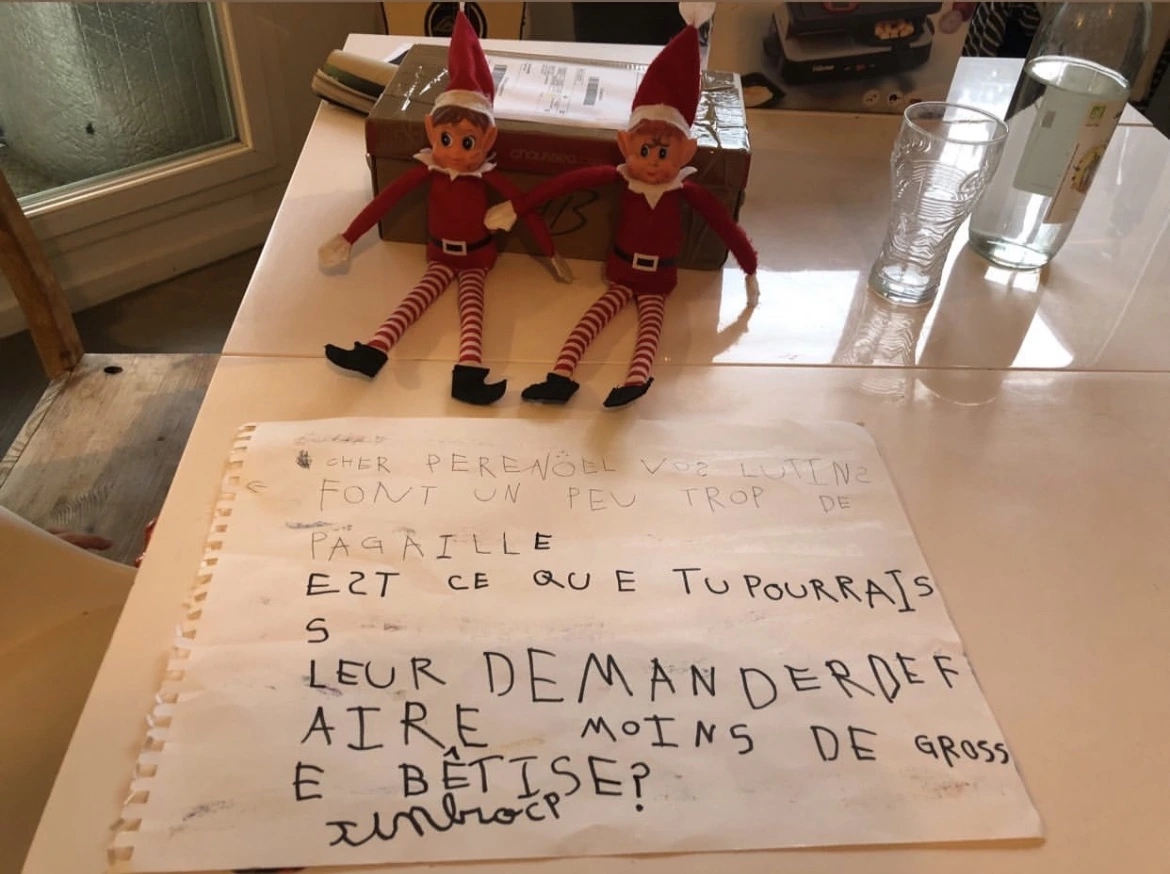 chaussea
CHER PERENÖEL VOS LUTINS
FONT UN PEU TROP DE
PAGAILLE
EST CE QUE TU POURRAIS
S
LEUR DEMANDER DE F
AIRE MOINS DE GROSS
E BÊTISE?